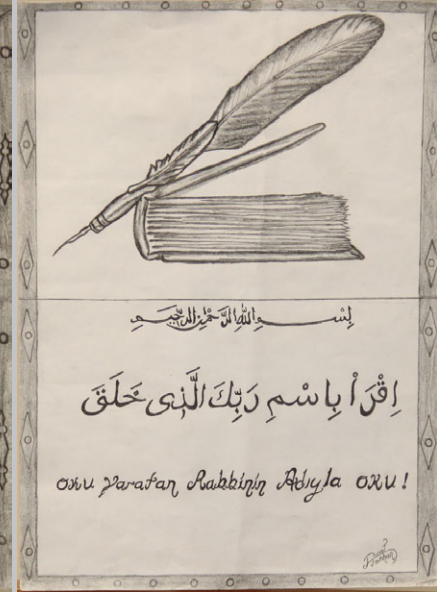 بِسْمِ اللهِ الرَّحْمٰنِ الرَّحِيمِ
اِقْرَاْ بِاسْمِ رَبِّكَ الَّذِى خَلَقَ
OKU Yaratan Rabbinin Adıyla OKU!